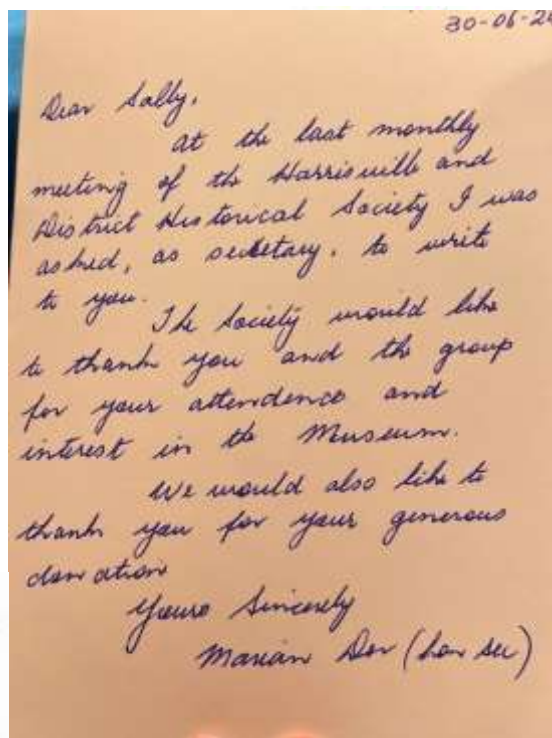 30-06-2
Dear Sally,
At the last monthly
meeting of the Harrisville and
District Historical Society I was
asked, as secretary, to write
to you.
The Society would like
to thank you and the group
for your attendence and
interest in the Museum.
We would also like to
thank you for your generous
donation
Yours Sincerely
Marian (hon sec)